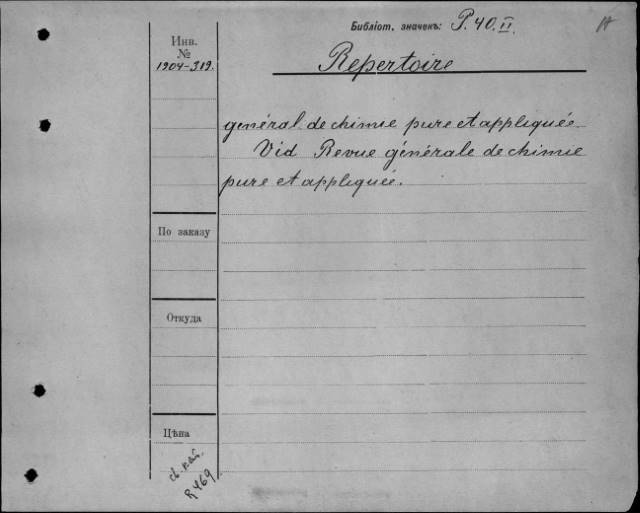 Библіот. значекъ: P. 40. II.
Инв.
№
1904-319.
Repertoire
général de chimie pure et appliquée
Vid Revue générale de chimie
pure et appliquée.
По заказу
Откуда
Цѣна
R 469